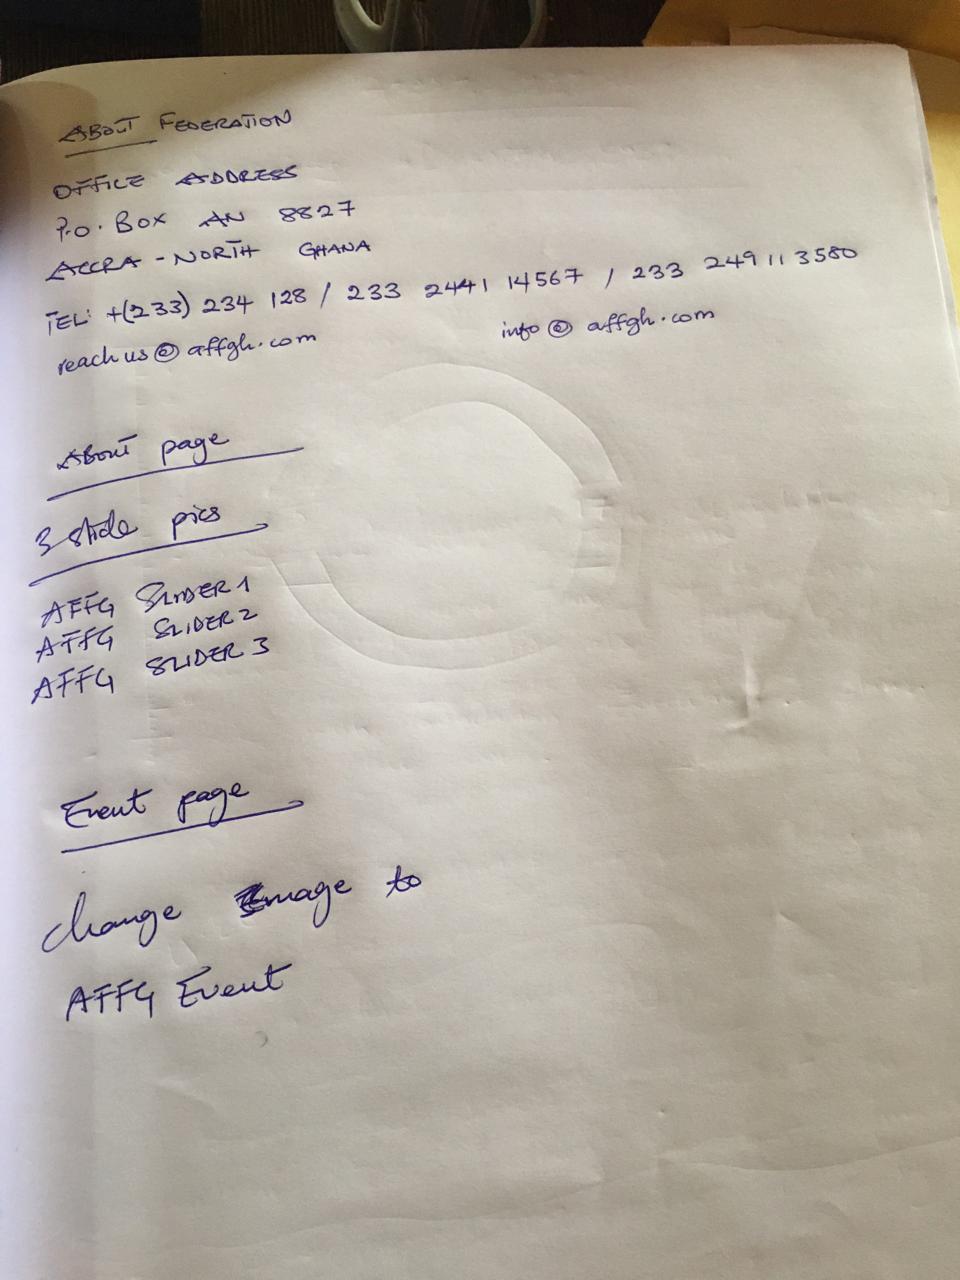 ABOUT FEDERATION
OFFICE ADDRESS
P.O. BOX AN 8827
ACCRA - NORTH GHANA
TEL: +(233) 234 128 / 233 2441 14567 / 233 249 113580
reach us @ affgh.com info @ affgh.com
About page
3 slide pics
AFFG SLIDER 1
AFFG SLIDER 2
AFFG SLIDER 3
Event page
change Image to
AFFG Event